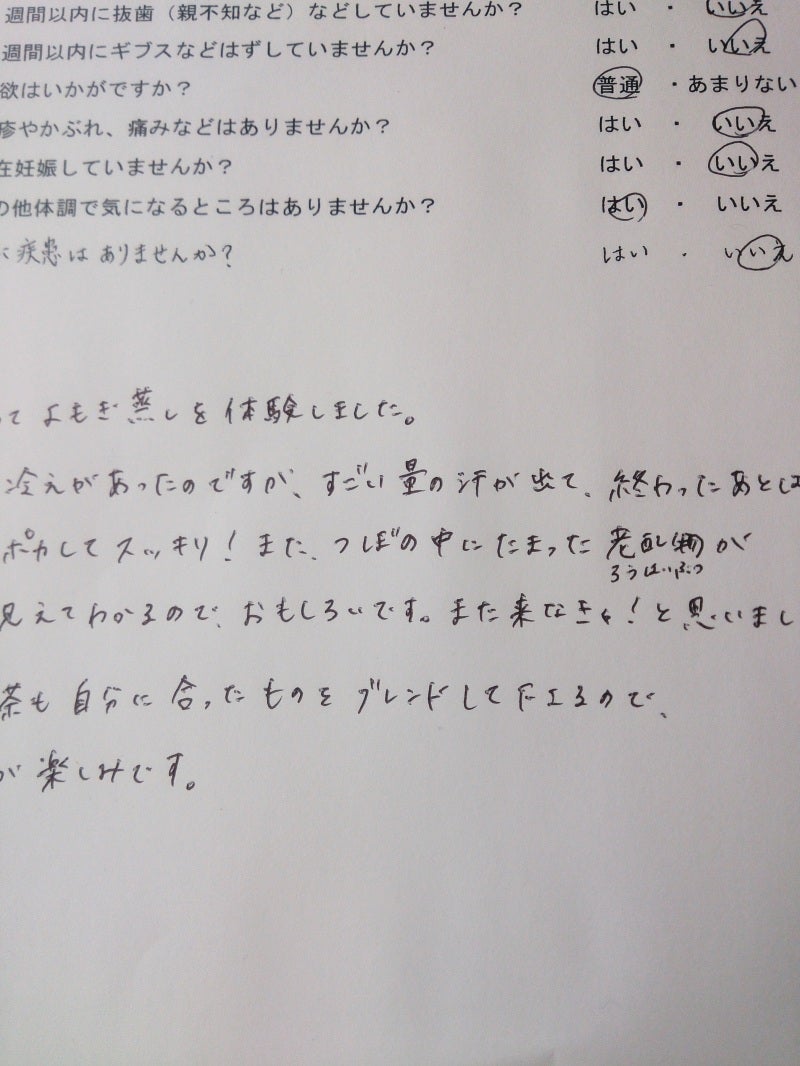 週間以内に抜歯（親不知など）などしていませんか？ はい ・ いいえ
週間以内にギブスなどはずしていませんか？ はい ・ いいえ
欲はいかがですか？ 普通 ・あまりない
疹やかぶれ、痛みなどはありませんか？ はい ・ いいえ
在妊娠していませんか？ はい ・ いいえ
の他体調で気になるところはありませんか？ はい ・ いいえ
疾患はありませんか？ はい ・ いいえ
てよもぎ蒸しを体験しました。
冷えがあったのですが、すごい量の汗が出て、終わったあとは
ポカしてスッキリ！また、つぼの中にたまった老配物が
ろうはいぶつ
見えてわかるので、おもしろいです。また来なきゃ！と思いまし
茶も自分に合ったものをブレンドして下さるので、
が楽しみです。